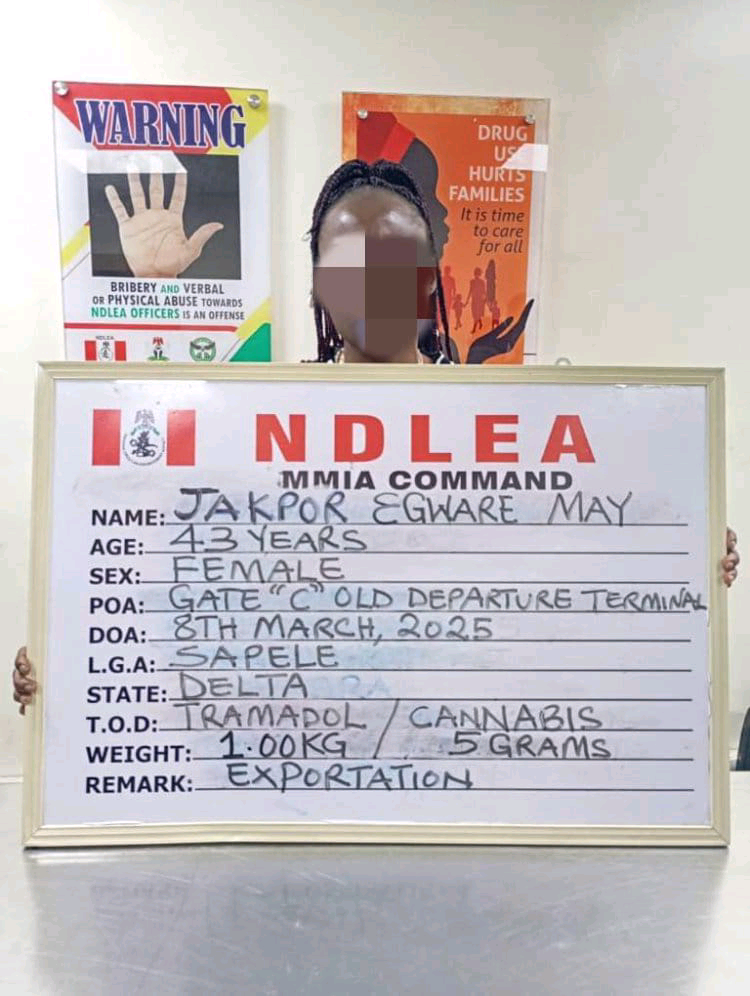 WARNING
BRIBERY AND VERBAL
OR PHYSICAL ABUSE TOWARDS
NDLEA OFFICERS IS AN OFFENSE
NDLEA
DRUG
HURTS
FAMILIES
It is time
to care
for all
NDLEA
MMIA COMMAND
NAME: JAKPOR EGWARE MAY
AGE: 43 YEARS
SEX: FEMALE
POA: GATE "C" OLD DEPARTURE TERMINAL
DOA: 8TH MARCH, 2025
L.G.A: SAPELE
STATE: DELTA
T.O.D: TRAMADOL / CANNABIS
WEIGHT: 1.00KG / 5 GRAMS
REMARK: EXPORTATION